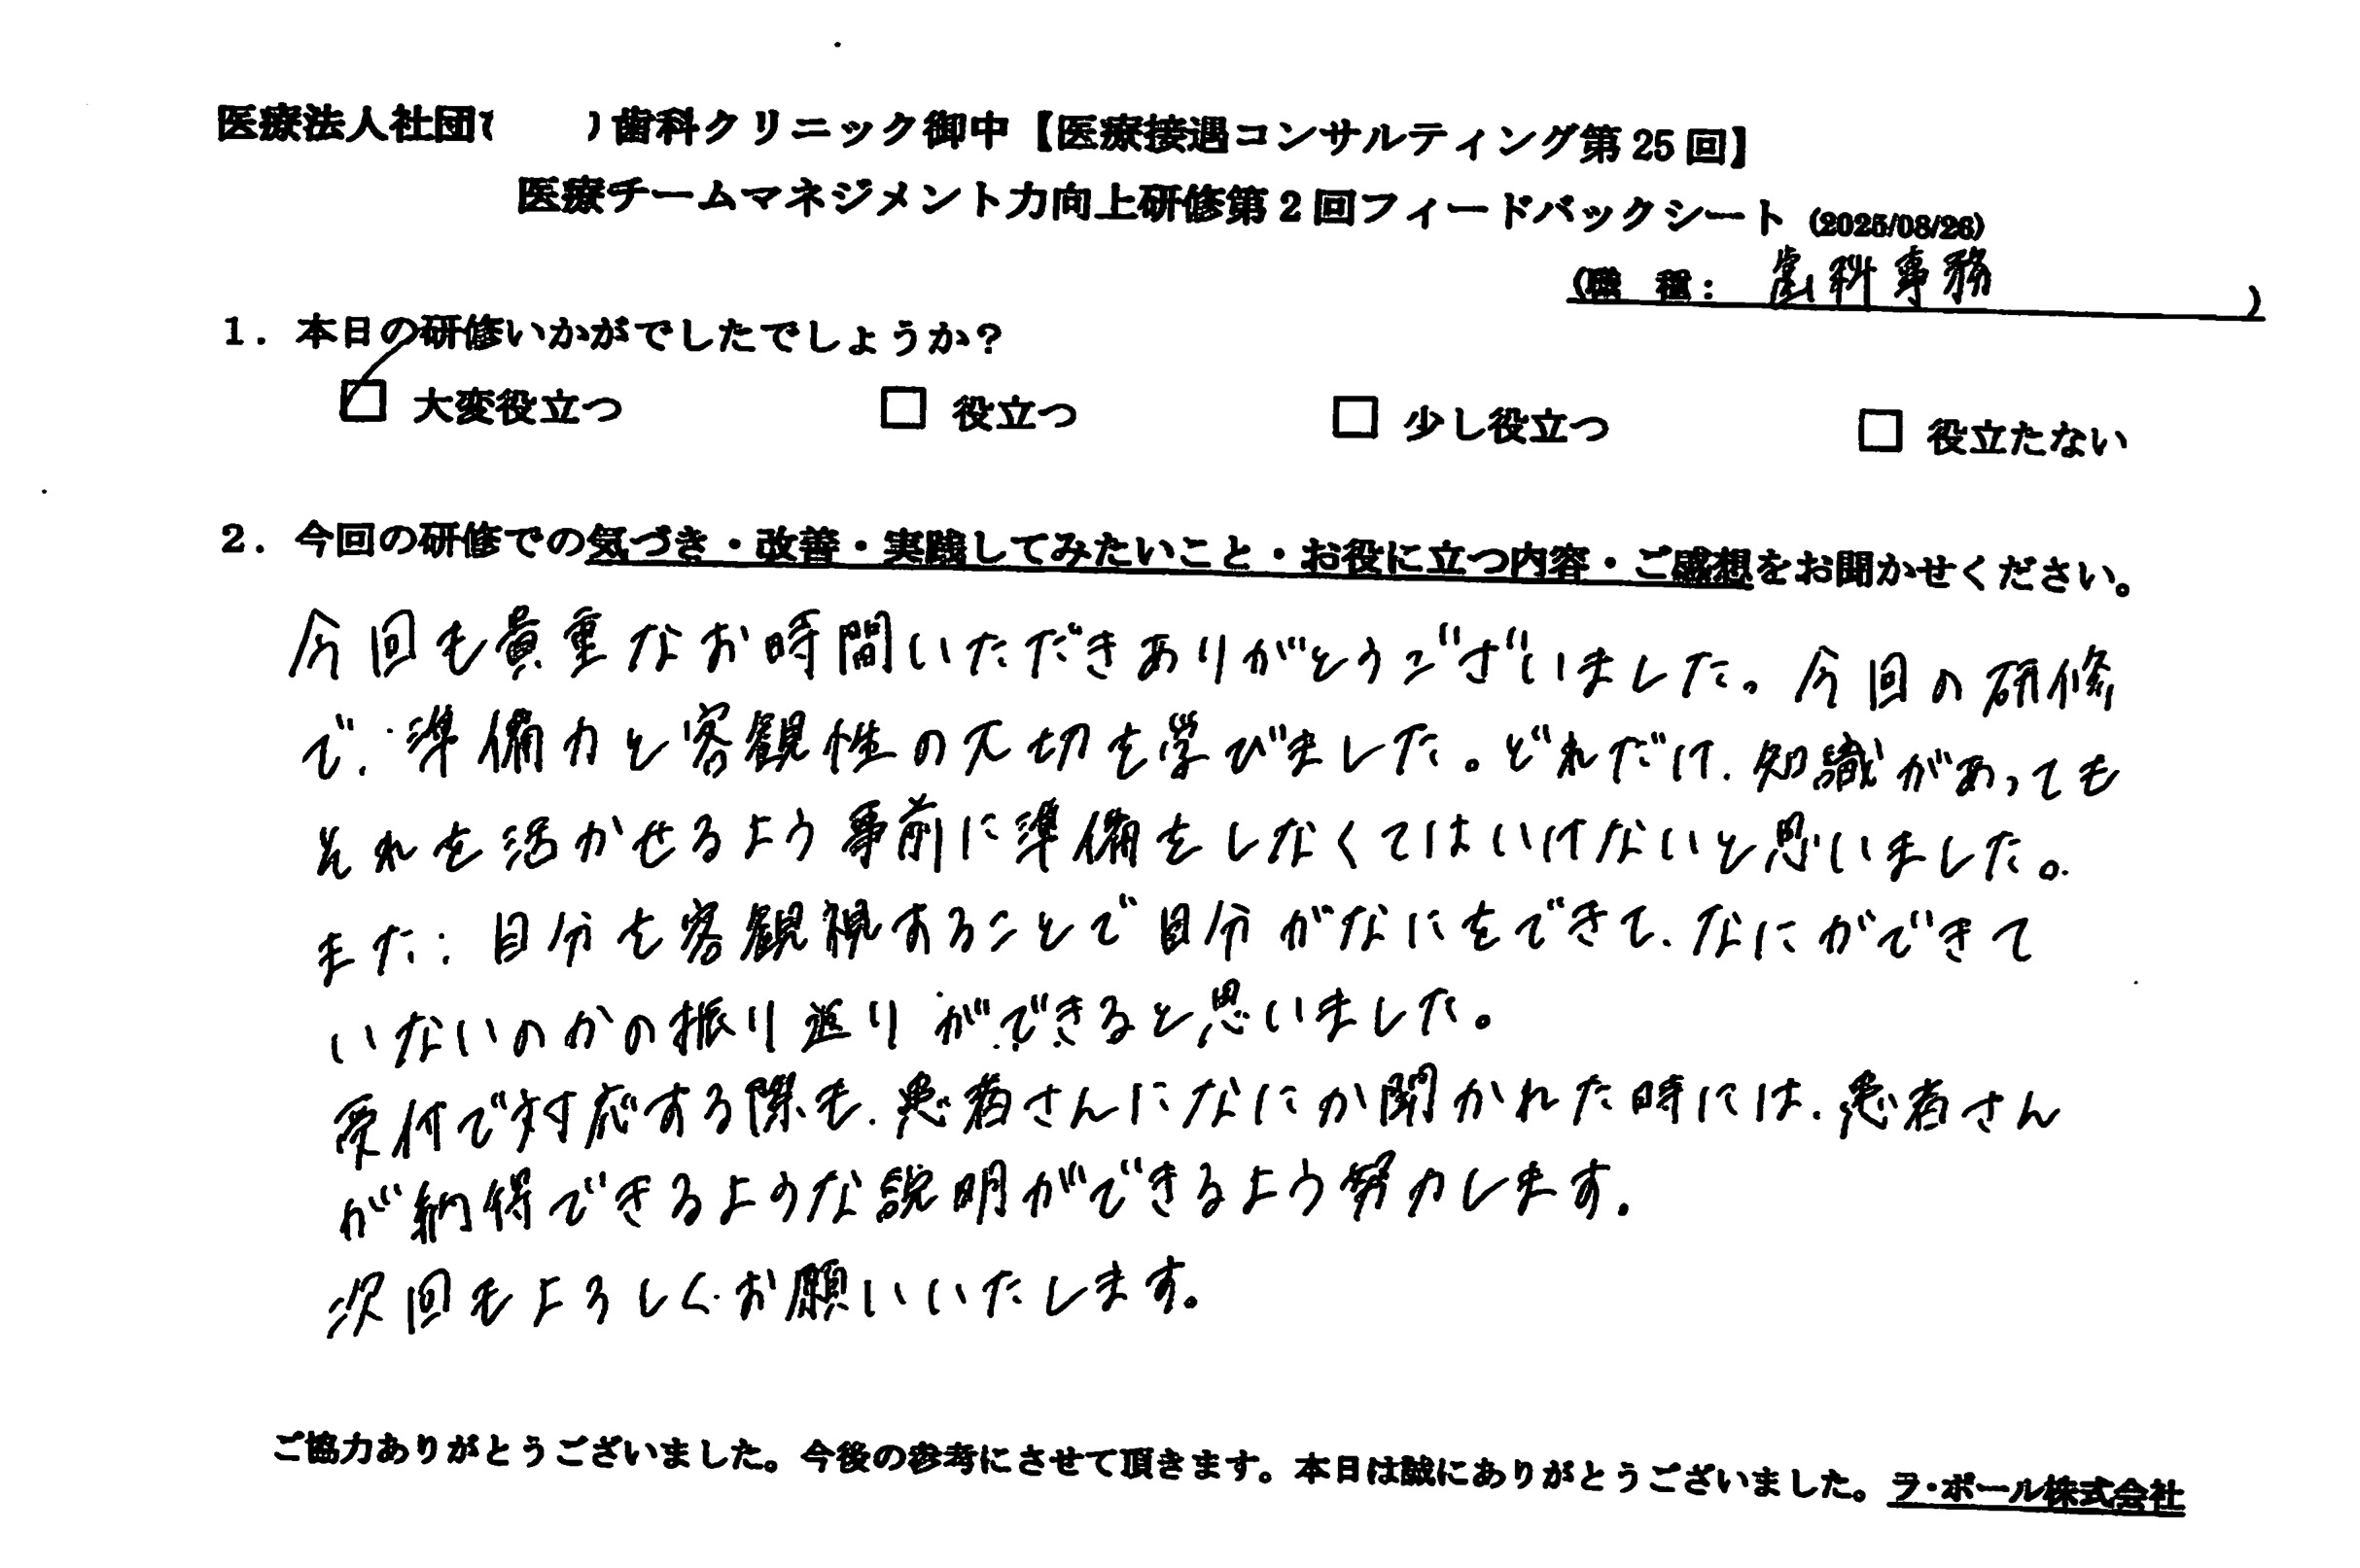 医療法人社団(　　)歯科クリニック御中【医療接遇コンサルティング第25回】
医療チームマネジメント力向上研修第2回フィードバックシート (2025/08/26)
(職　種：　歯科事務　)
1．本日の研修いかがでしたでしょうか？
☑ 大変役立つ　□ 役立つ　□ 少し役立つ　□ 役立たない
2．今回の研修での気づき・改善・実践してみたいこと・お役に立つ内容・ご感想をお聞かせください。
今回も貴重なお時間いただきありがとうございました。今回の研修
で、準備力と客観性の大切を学びました。どれだけ、知識があっても
それを活かせるよう事前に準備をしなくてはいけないと思いました。
また、自分を客観視することで自分がなにをできて、なにができて
いないのかの振り返りができると思いました。
受付で対応する際も、患者さんになにか聞かれた時には、患者さん
が納得できるような説明ができるよう努力します。
次回もよろしくお願いいたします。
ご協力ありがとうございました。今後の参考にさせて頂きます。本日は誠にありがとうございました。ラ・ポール株式会社